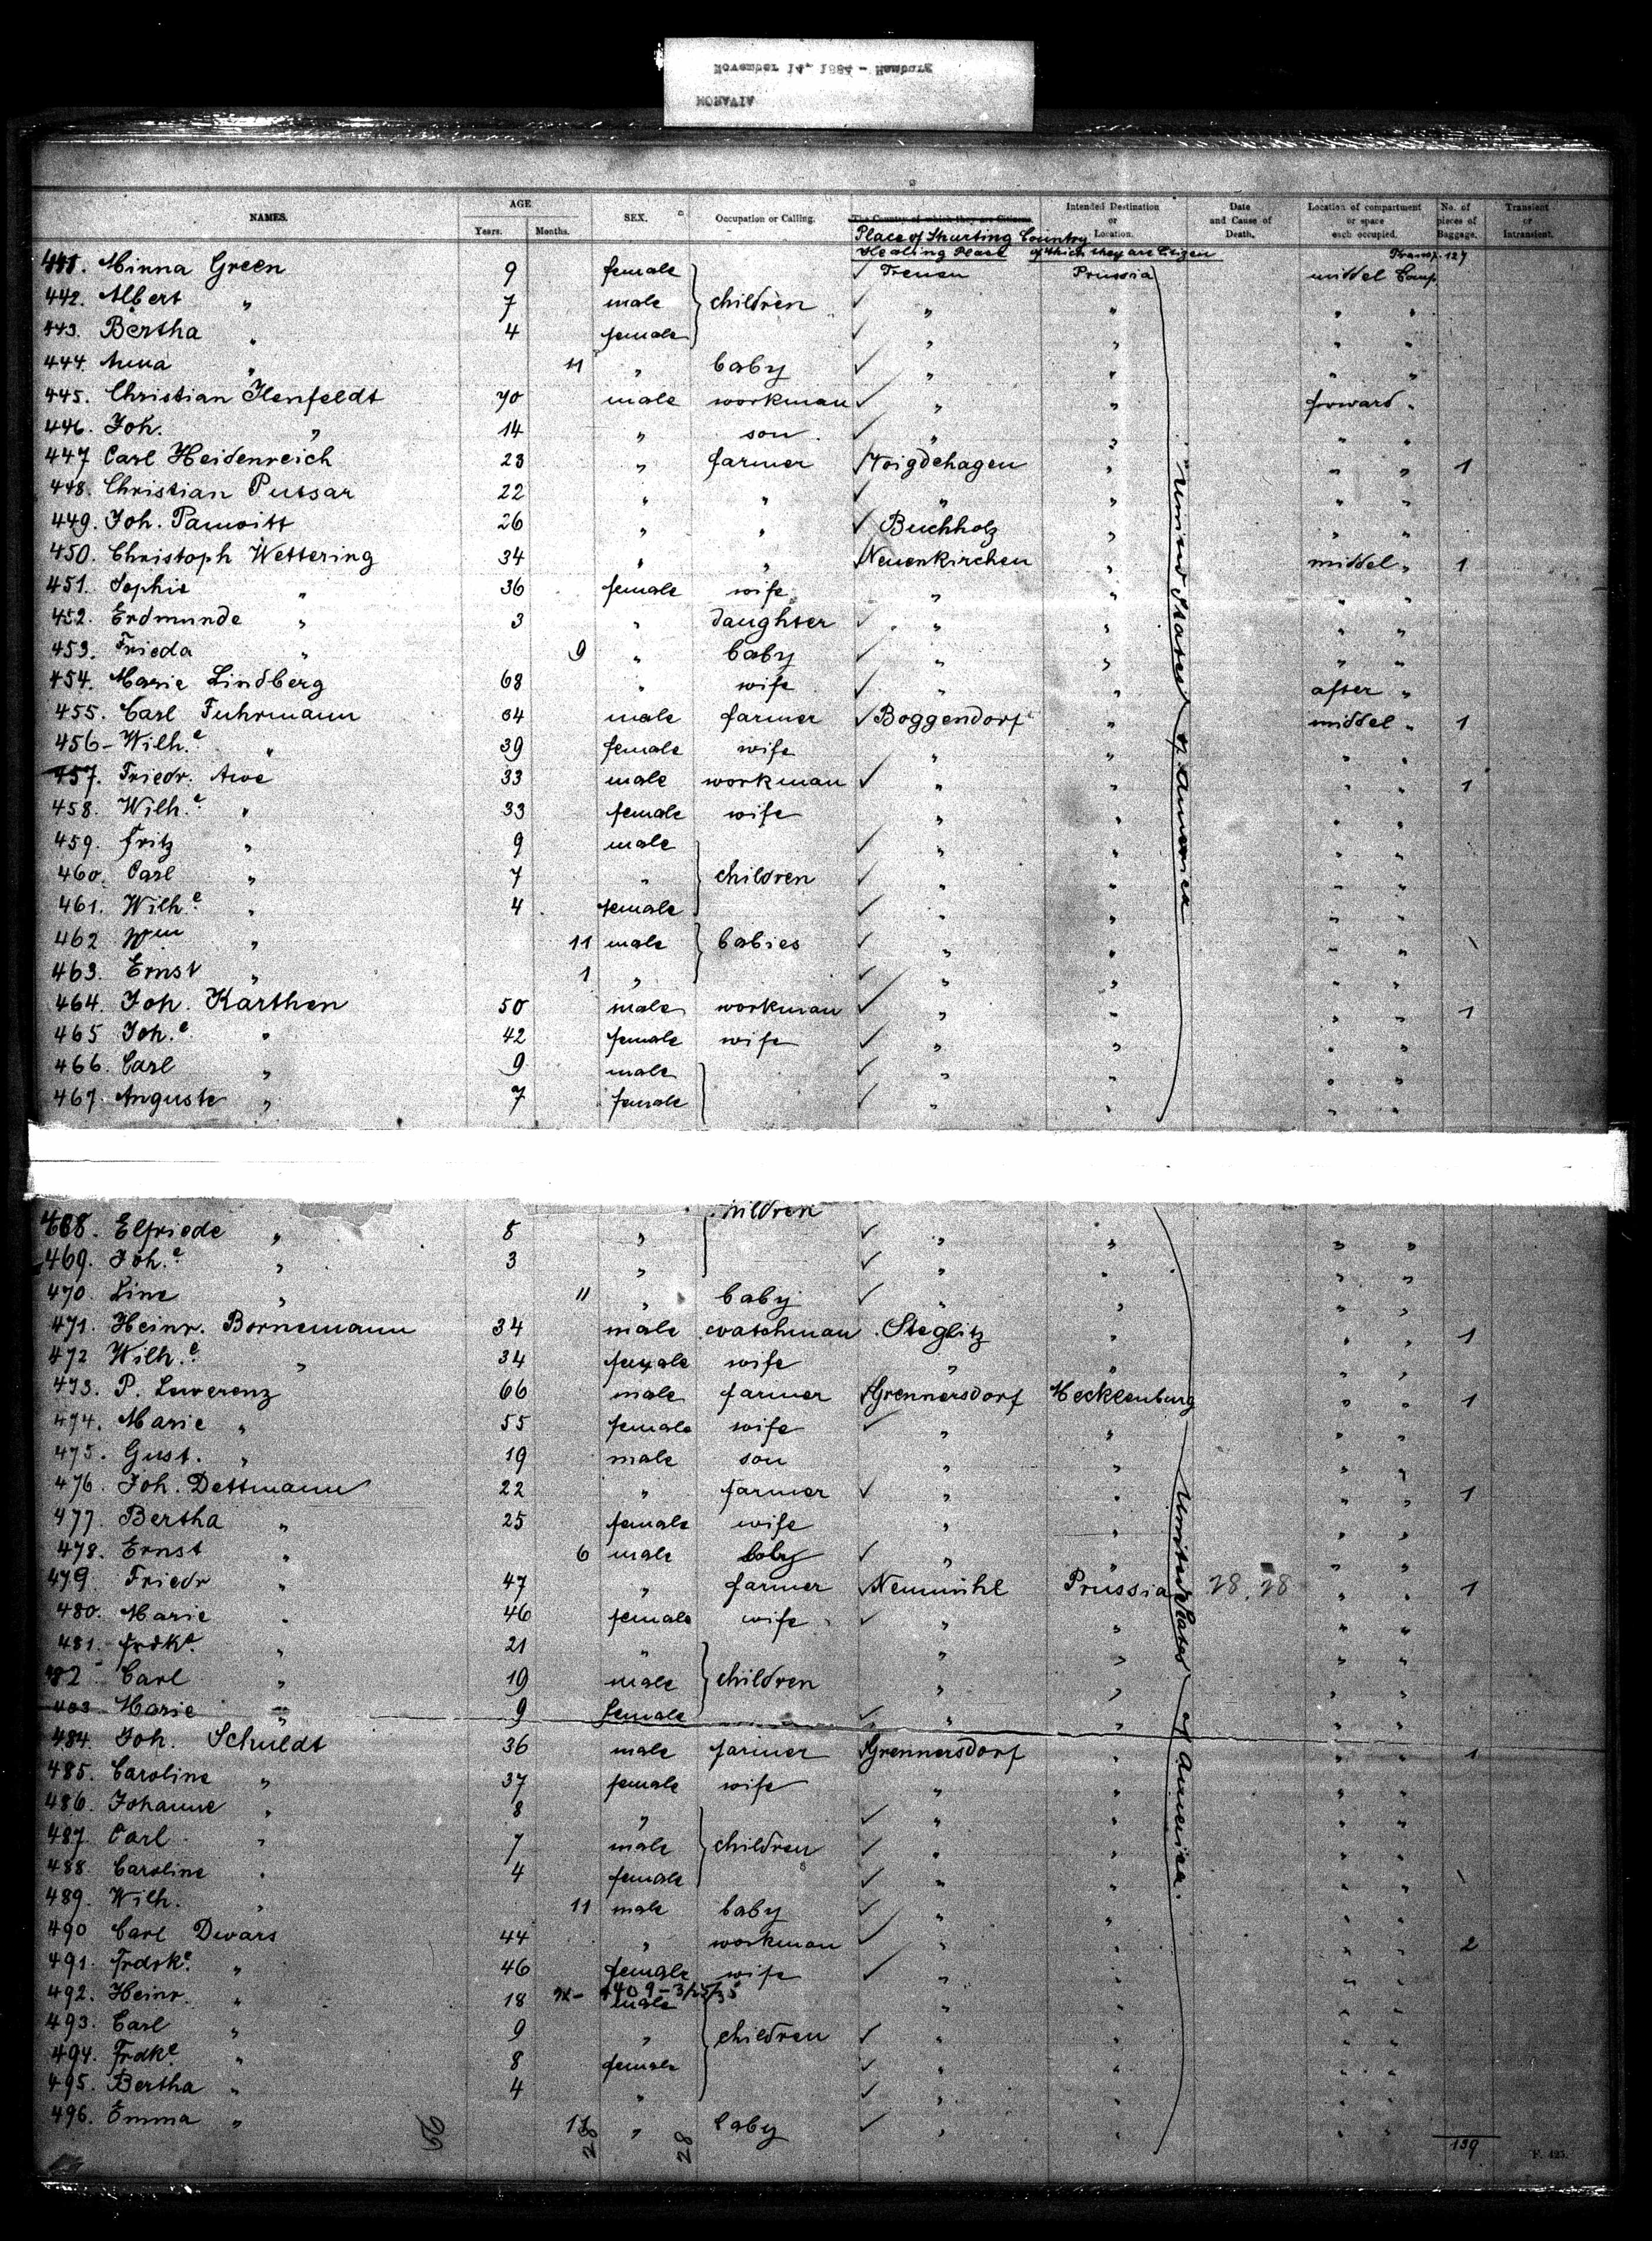 November 14, 1884 - Hamburg
MORAVIA
NAMES. AGE Years. Months. SEX. Occupation or Calling. The Country of which they are Citizens Intended Destination or Location. Date and Cause of Death. Location of compartment or space each occupied. No. of pieces of Baggage. Transient or Intransient.
Place of Country
of which they are Citizen Transp. 127
441. Minna Green 9 female ✓ Prussia middel Comp
442. Albert " 7 male children ✓ " " " "
443. Bertha " 4 female ✓ " " " "
444. Anna " 11 " baby ✓ " " " "
445. Christian Ilenfeldt 70 male workman ✓ " " forward "
446. Joh. " 14 " son ✓ " " " "
447 Carl Heidenreich 23 " farmer Voigdehagen " " " 1
448. Christian Pussar 22 " " ✓ " " " "
449. Joh. Pamoitt 26 " " ✓ Buchholz " " "
450. Christoph Wettering 34 " " Neuenkirchen " middel " 1
451. Sophie " 36 female wife " " " "
452. Erdmunde " 3 " daughter ✓ " " " "
453. Frieda " 9 " baby ✓ " " " "
454. Marie Lindberg 68 " wife ✓ " " after "
455. Carl Fuhrmann 64 male farmer ✓ Boggendorf " middel " 1
456 - Wilh.e " 39 female wife " " " "
457. Friedr. Awe 33 male workman ✓ " " " " 1
458. Wilh.e " 33 female wife " " " "
459. Fritz " 9 male ✓ " " " "
460. Carl " 7 " children ✓ " " " "
461. Wilh.e " 4 female ✓ " " " "
462 Wm " 11 male babies ✓ " " " "
463. Ernst " 1 " ✓ " " " "
464. Joh. Karthen 50 male workman ✓ " " " " 1
465 Joh.e " 42 female wife ✓ " " " "
466. Carl " 9 male ✓ " " " "
467. Auguste " 7 female ✓ " " " "
United States of America
children
468. Elfriede " 5 " ✓ " " " "
469. Joh.e " 3 " ✓ " " " "
470. Line " 11 " baby ✓ " " " "
471. Heinr. Bornemann 34 male watchman Steglitz " " " 1
472 Wilh.e " 34 female wife " " " "
473. P. Lewerenz 66 male farmer Grennersdorf Mecklenburg " " 1
474. Marie " 55 female wife ✓ " " " "
475. Gust. " 19 male son " " " "
476. Joh. Dettmann 22 " farmer ✓ " " " " 1
477. Bertha " 25 female wife " " " "
478. Ernst " 6 male baby ✓ " " " "
479 Friedr " 47 " farmer Neumühl Prussia 28. 28 " " 1
480. Marie " 46 female wife ✓ " " " "
481. Frdke. " 21 " " " " "
482 Carl " 19 male children " " " "
483 Marie " 9 female ✓ " " " "
484. Joh. Schuldt 36 male farmer Grennersdorf " " " 1
485. Caroline " 37 female wife " " " "
486. Johanne " 8 " ✓ " " " "
487. Carl " 7 male children ✓ " " " "
488. Caroline " 4 female ✓ " " " "
489. Wilh. " 11 male baby ✓ " " " "
490 Carl Dwars 44 " workman ✓ " " " " 2
491. Frdrke. " 46 female wife ✓ " " " "
492. Heinr. " 18 male " " " "
493. Carl " 9 " children ✓ " " " "
494. Frdke. " 8 female ✓ " " " "
495. Bertha " 4 " ✓ " " " "
496. Emma " 11 " baby ✓ " " " "
United States of America.
28 28
139
F. 425.